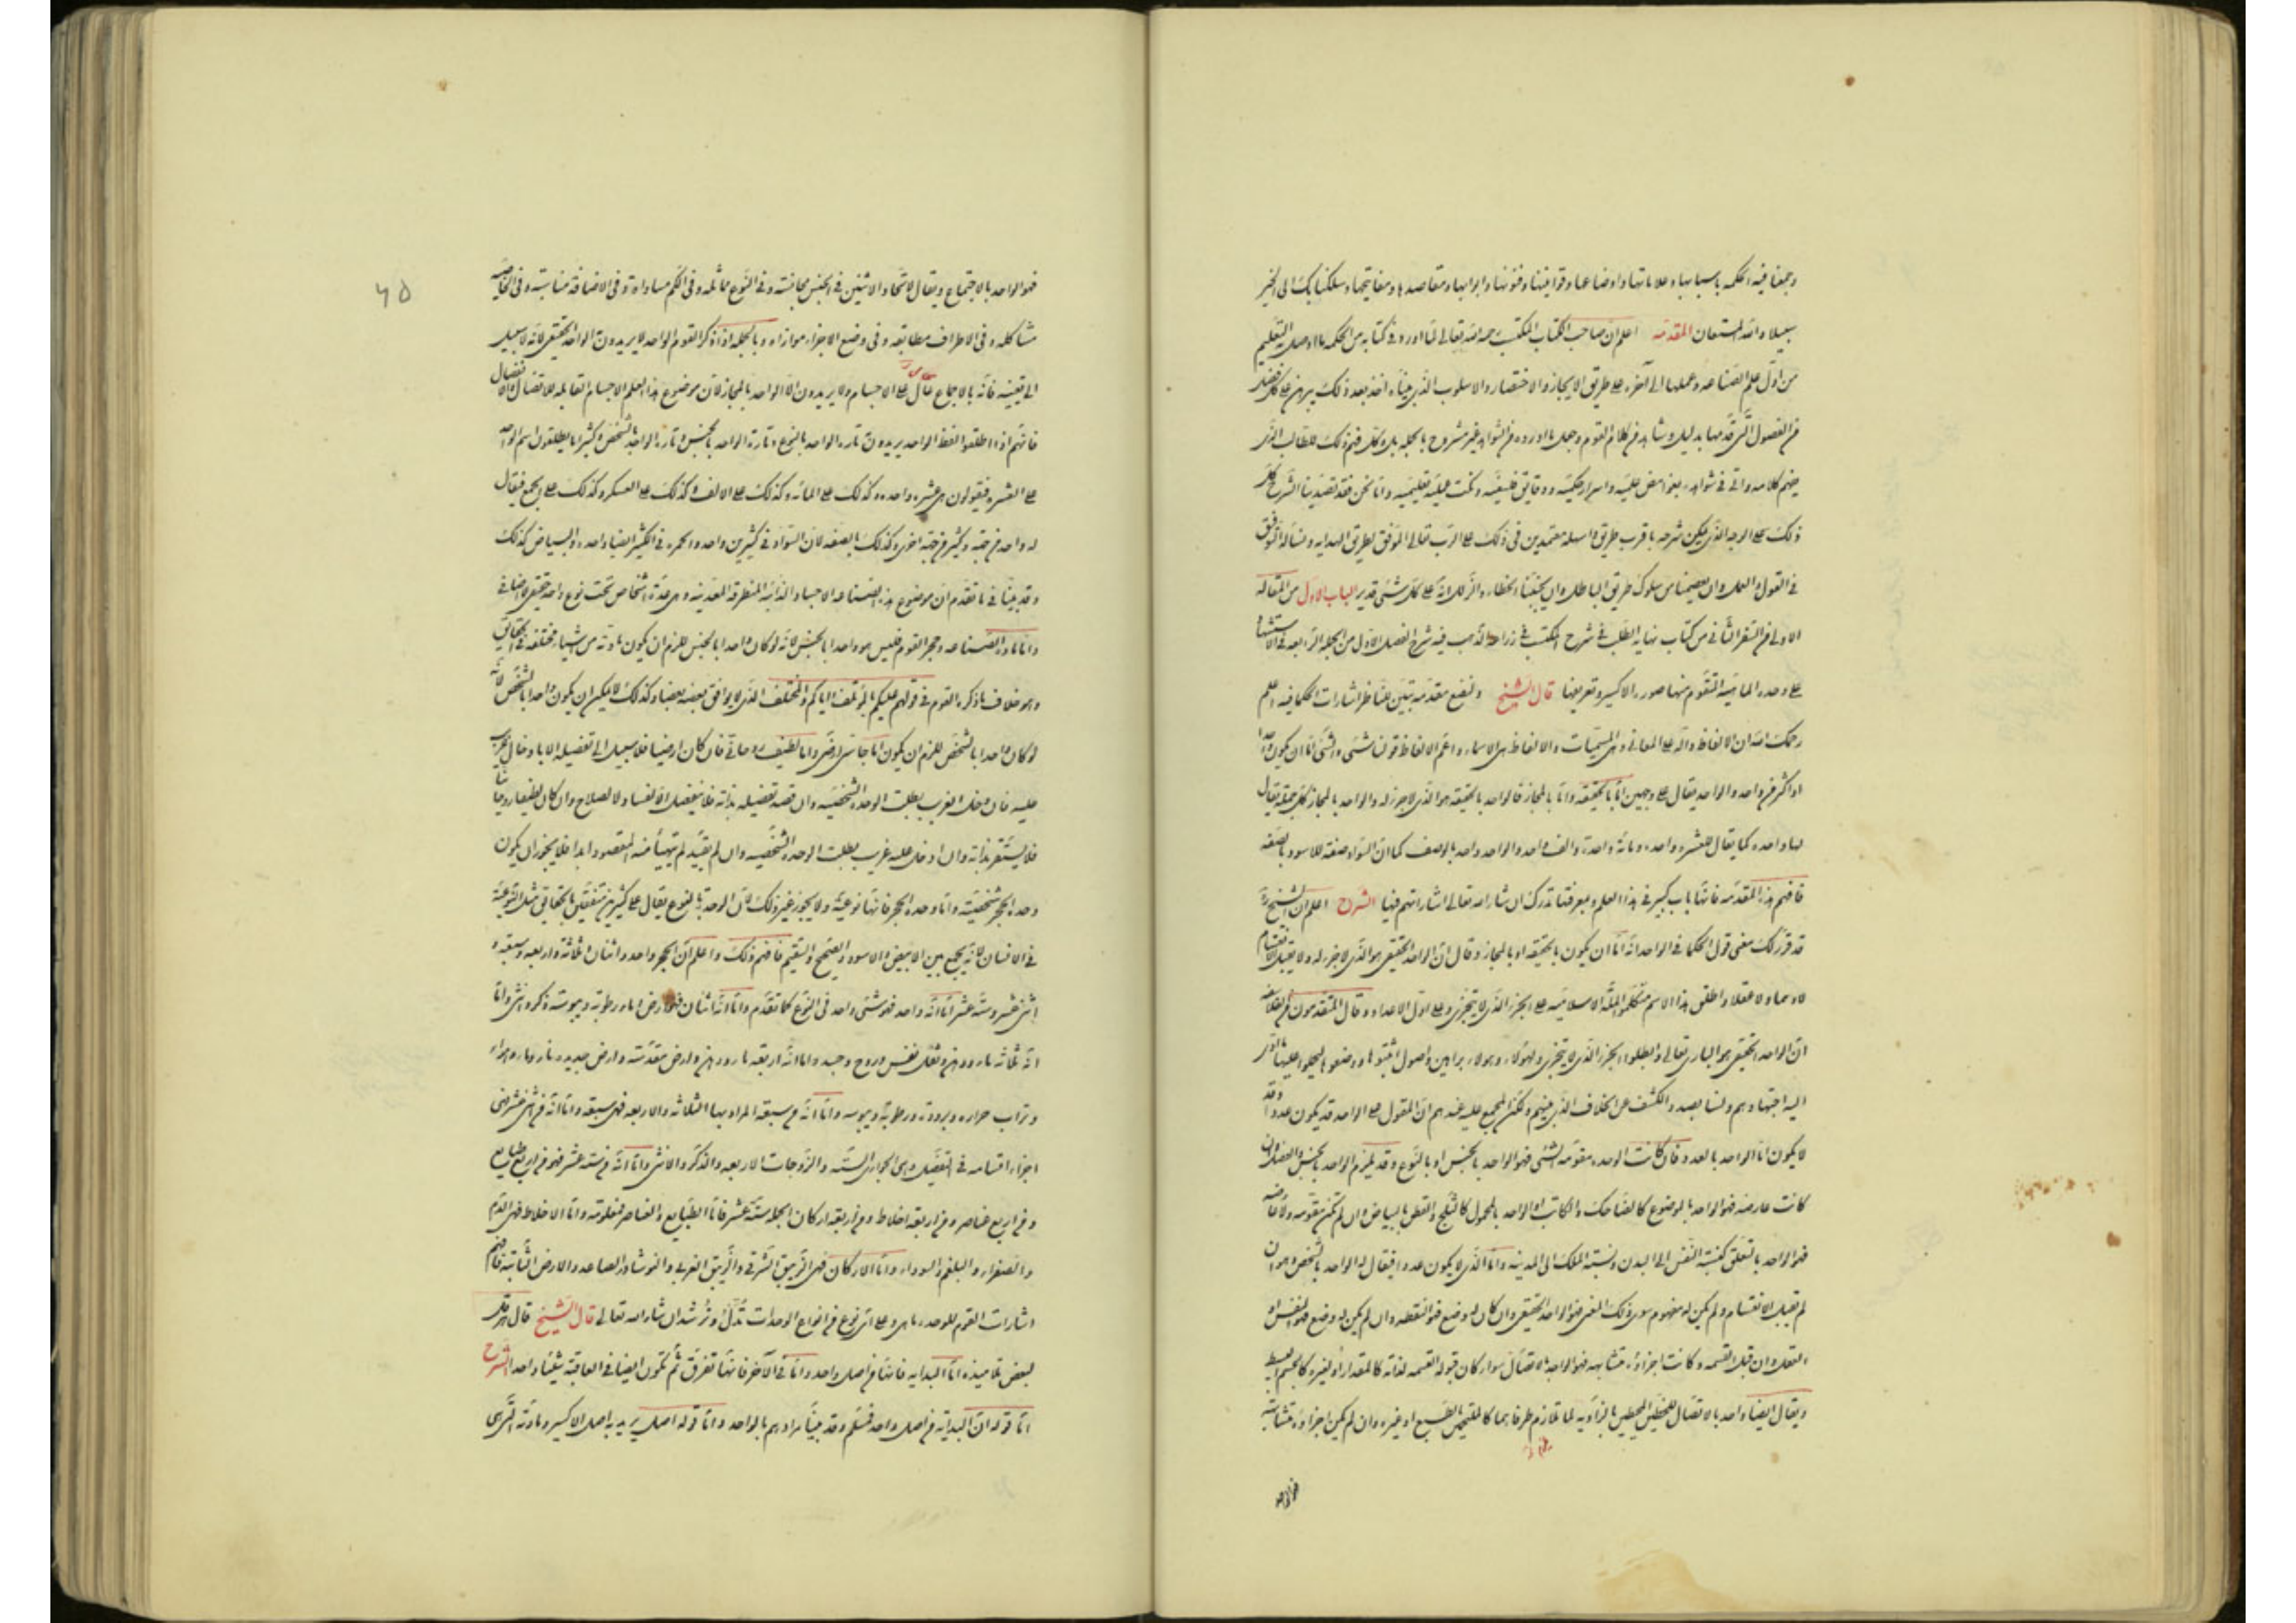 وجمعنا فيه الحكمه باسبابها وعلاماتها واوضاعها وقوانينها وفنونها وابوابها ومقاصدها ومفاتيحها وسلكنا بك الى الخير
سبيلا والله المستعان المقدمه اعلم ان صاحب الكتاب المكتسب رحمه الله تعالى لما اورد في كتابه من الحكمه ما اوصل به التعليم
من اول علم الصناعه وعملها الى آخره على طريق الايجاز والاختصار والاسلوب الذى بيناه اخذ بعد ذلك يبرهن على كل فصل
من الفصول التى قدمها بدليل وشاهد من كلام القوم وجعل ما اورده من الشواهد غير مشروح بالجمله بل وكل فهم ذلك للطالب الذى
يفهم كلامه واتى في شواهده بغوامض علميه واسرار حكميه ودقايق فلسفيه ونكت عمليه تعليميه واما نحن فقد تصدينا لشرح كل
ذلك على الوجه الذى يمكن شرحه باقرب طريق واسهله معتمدين في ذلك على الرب تعالى الموفق لطريق الهدايه ونساله التوفيق
في القول والعمل وان يعصمنا من سلوك طريق الباطل وان يجنبنا الخطاء والزلل انه على كل شئى قدير الباب الاول من المقاله
الاولى من السفر الثانى من كتاب نهاية الطلب في شرح المكتسب في زراعة الذهب فيه شرح الفصل الاول من الجمله الرابعه في الاستشهاد
على وحدة الماهيه المتقوم منها صورة الاكسير وتعريفها قال الشيخ ولنضع مقدمه تبين للناظر اشارات الحكما فيه اعلم
رحمك الله ان الالفاظ دالة على المعانى وهى المسميات والالفاظ هى الاسماء واعم الالفاظ قولنا شئى والشئى اما ان يكون واحدا
او اكثر من واحد والواحد يقال على وجهين اما بالحقيقه واما بالمجاز فالواحد بالحقيقه هو الذى لا جزء له والواحد بالمجاز كل جملة يقال
لها واحده كما يقال عشره واحده ومائه واحدة والف واحد والواحد واحد بالوصف كما ان السواد صفة للاسود بالصفه
فافهم هذه المقدمه فانها باب كبير في هذا العلم وبمعرفتها تدرك ان شاء الله تعالى اشاراتهم فيها الشرح اعلم ان الشيخ
قد قرر لك معنى قول الحكما في الواحد انه اما ان يكون بالحقيقه او بالمجاز وقال ان الواحد الحقيقى هو الذى لا جزء له ولا يقبل الانقسام
لا وهما ولا عقلا واطلق هذا الاسم متكلموا المله الاسلاميه على الجزء الذى لا يتجزى وعلى اول الاعداد وقال المتقدمون من الفلاسفه
ان الواحد الحقيقى هو البارى تعالى وابطلوا الجزء الذى لا يتجزى ولهؤلاء وهولاء براهين واصول اثبتوها ووضعوها ليحملوا عليها ما ادى
اليه اجتهادهم ولسنا بصدد الكشف عن الخلاف الذى بينهم ولكن المجمع عليه عندهم ان المقول على الواحد قد يكون عددا وقد
لا يكون اما الواحد بالعدد فان كانت الوحده مقومه للشئى فهو الواحد بالجنس او بالنوع وقد يلزم الواحد بالجنس الفصل وان
كانت عارضه فهو الواحد بالموضوع كالضاحك والكاتب او الواحد بالمحمول كالثلج والقطن بالبياض وان لم تكن مقومه ولا عارضه
فهو الواحد بالتعلق كنسبة النفس الى البدن ونسبة الملك الى المدينه واما الذى لا يكون عددا فيقال له الواحد بالشخص وهو ان
لم يقبل الانقسام ولم يكن له مفهوم سوى ذلك المعنى فهو الواحد الحقيقى وان كان له وضع فهو النقطه وان لم يكن له وضع فهو النفس او
العقل وان قبل القسمه وكانت اجزاؤه متشابهه فهو الواحد بالاتصال سواء كان قبوله القسمه لذاته كالمقدار او لغيره كالجسم البسيط
ويقال ايضا واحد بالاتصال للخطين المحيطين بالزاويه لما تلازم طرفاهما كالملتحمين بالطبع او غيره وان لم يكن اجزاؤه متشابهة
فهو الواحد
فهو الواحد بالاجتماع ويقال لاتحاد الاثنين في الجنس مجانسته وفي النوع مماثله وفي الكم مساواة وفي الاضافة مناسبته وفي الخاصيه
مشاكله وفي الاطراف مطابقه وفي وضع الاجزاء موازاه وبالجمله اذا ذكر القوم الواحد لا يريدون الواحد الحقيقى لانه لا سبيل
الى تعينه فانه بالاجماع محال على الاجسام ولا يريدون الا الواحد بالمجاز لان موضوع هذا العلم الاجسام القابله للاتصال والانفصال
فانهم اذا اطلقوا لفظ الواحد يريدون تارة الواحد بالنوع وتارة الواحد بالجنس وتارة الواحد بالشخص وكثيرا ما يطلقون اسم الواحد
على العشره فيقولون هى عشره واحده وكذلك على المائه وكذلك على الالف وكذلك على العسكر وكذلك على الجمع فيقال
له واحد من جهة وكثير من جهة اخرى وكذلك بالصفه لان السواد في كثيرين واحد والحمره في الكثير ايضا واحده والبياض كذلك
وقد بينا في ما تقدم ان موضوع هذه الصناعه الاجساد الذائبة المنطرقه المعدنيه وهى عدة اشخاص تحت نوع واحد حقيقى لا اضافى
واما مادة الصناعه وحجر القوم فليس هو واحدا بالجنس لانه لو كان واحدا بالجنس للزم ان يكون مادته من اشياء مختلفة في الحقايق
وهو خلاف ما ذكره القوم في قولهم عليكم بالمؤتلف واياكم والمختلف الذى لا يوافق بعضه بعضا وكذلك لا يمكن ان يكون واحدا بالشخص لانه
لو كان واحدا بالشخص للزم ان يكون اما جاسى ارضى واما لطيف روحانى فان كان ارضيا فلا سبيل الى تفصيله الا بادخال غريب
عليه فان دخل الغريب بطلت الوحده الشخصيه وان قصد تفصيله بذاته فلا ينفصل الا لفساد لا لصلاح وان كان لطيفا روحانيا
فلا يستقر بذاته وان ادخل عليه غريب بطلت الوحده الشخصيه وان لم يقيد لم يتهيأ منه المقصود ابدا فلا يجوز ان يكون
وحدة الحجر شخصيته واما وحده الحجر فانها نوعية ولا يجوز غير ذلك لان الوحدة بالنوع يقال على كثيرين متفقين بالحقايق مثل النوعية
في الانسان لانه يجمع بين الابيض والاسود والصحيح والسقيم فافهم ذلك واعلم ان الحجر واحد واثنان وثلاثة واربعه وسبعه و
اثنى عشر وستة عشر اما انه واحد فهو شئى واحد في النوع كما تقدم واما انه اثنان فهو ارض وماء ورطوبته ويبوسته وذكر وانثى واما
انه ثلاثه ماء ودهن وثفل نفس وروح وجسد واما انه اربعه ماء ودهن وارض مقدسه وارض جديده نار وماء وهواء
وتراب حراره وبروده ورطوبة ويبوسه واما انه من سبعه المراد بها الثلاثه والاربعه فهى سبعه واما انه من اثنى عشر فهى
اجزاء اقسامه في التفصيل وهى الجوارى السته والزوجات الاربعه والذكر والانثى واما انه من سته عشر فهو من اربع طبايع
ومن اربع عناصر ومن اربعه اخلاط ومن اربعه اركان الجمله ستة عشر فاما الطبايع والعناصر فمعلومه واما الاخلاط فهى الدم
والصفراء والبلغم والسوداء واما الاركان فهى الزيبق الشرقى والزيبق الغربى والنوشادر الصاعد والارض الثابتة فافهم
اشارات القوم للوحده ما هى وعلى اى نوع من انواع الوحدات تدل وترشد ان شاء الله تعالى قال الشيخ قال هرقل
لبعض تلاميذه اما البدايه فانها من اصل واحد واما في الآخر فانها تفرق ثم تكون ايضا في العاقبة شيئا واحدا الشرح
اما قوله ان البداية من اصل واحد فمسلم وقد بينا مرادهم بالواحد واما قوله اصل يريد به اصل الاكسير ومادته التى هى
۴۵